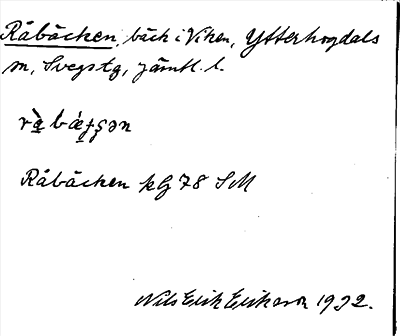 Råbäcken, bäck i Viken, Ytterhogdals
sn, Svegs tg, Jämtl. l.
Råbäcken kG 78 SM
Nils Erik Erikson 1932.